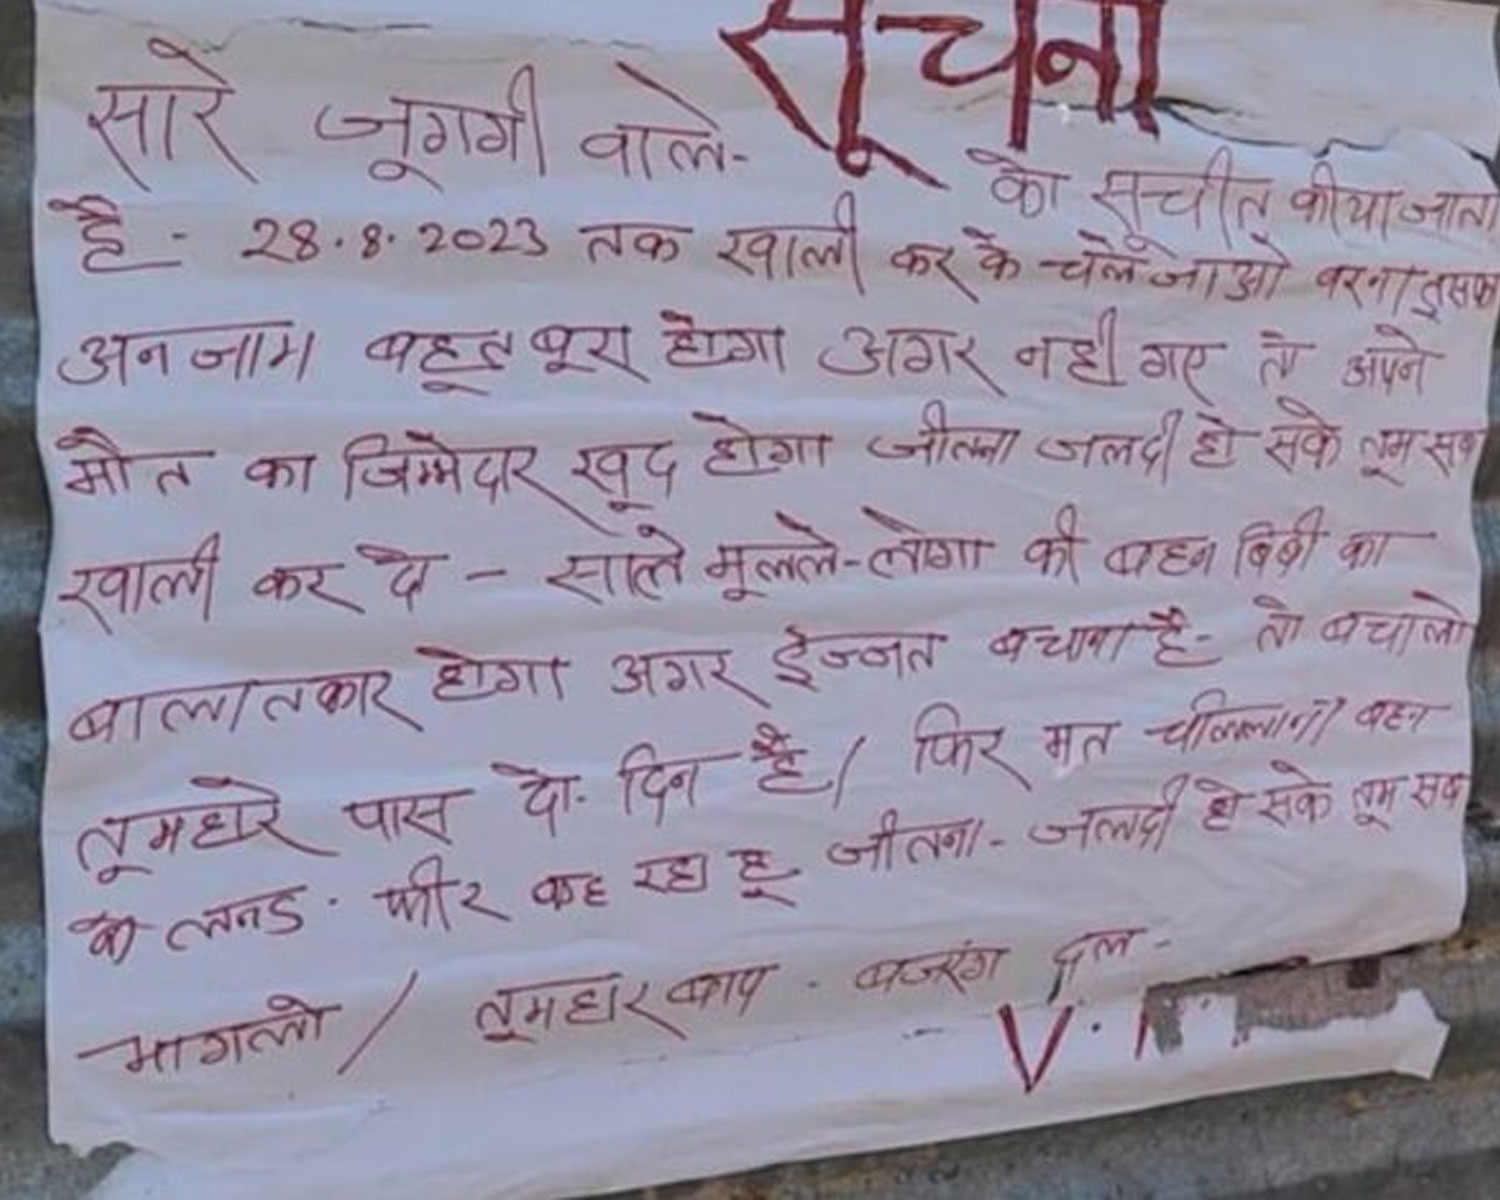 सूचना
सारे जूगगी वाले-
को सूचीत कीया जाता
है - 28.8.2023 तक खाली कर के चले जाओ वरना इसका
अनजाम बहूत बूरा होगा अगर नही गए तो अपने
मौत का जिम्मेदार खूद होगा जीतना जलदी हो सके तूम सब
खाली कर दो - साले मूलले-लोगो की बहन बिबी का
बालातकार होगा अगर ईज्जत बचाना है- तो बचालो
तूमहारे पास दो. दिन है / फिर मत चीललाना बहन
के लनड. फीर कह रहा हू जीतना- जलदी हो सके तूम सब
भागलो / तूमहारा बाप . बजरंग दल -
V.